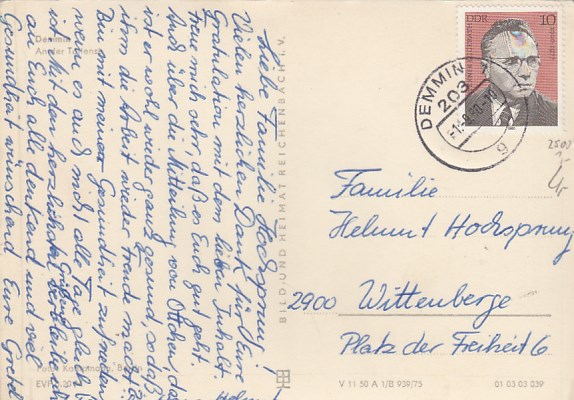 Demmin
An der Tollense
Liebe Familie Hochsprung!
Vielen herzlichen Dank für Eure
Gratulation mit dem lieben Inhalt.
Freue mich sehr, daß es Euch gut geht.
Auch über die Mitteilung von Ottchen, daß
ist er wohl wieder ganz gesund, sodaß
ihm die Arbeit wieder Freude macht?
Bin mit meiner Gesundheit zufrieden
wenn es auch nicht alle Tage gleich
ist. Mit den herzlichsten Grüßen verbleibe
an Euch alle denkend und viel
Gesundheit wünschend Eure Gretel
BILD UND HEIMAT REICHENBACH i. V.
DDR 10
DEMMIN
203
9
2500
Familie
Helmut Hochsprung
2900 Wittenberge
Platz der Freiheit 6
V 11 50 A 1/B 939/75
01 03 03 039